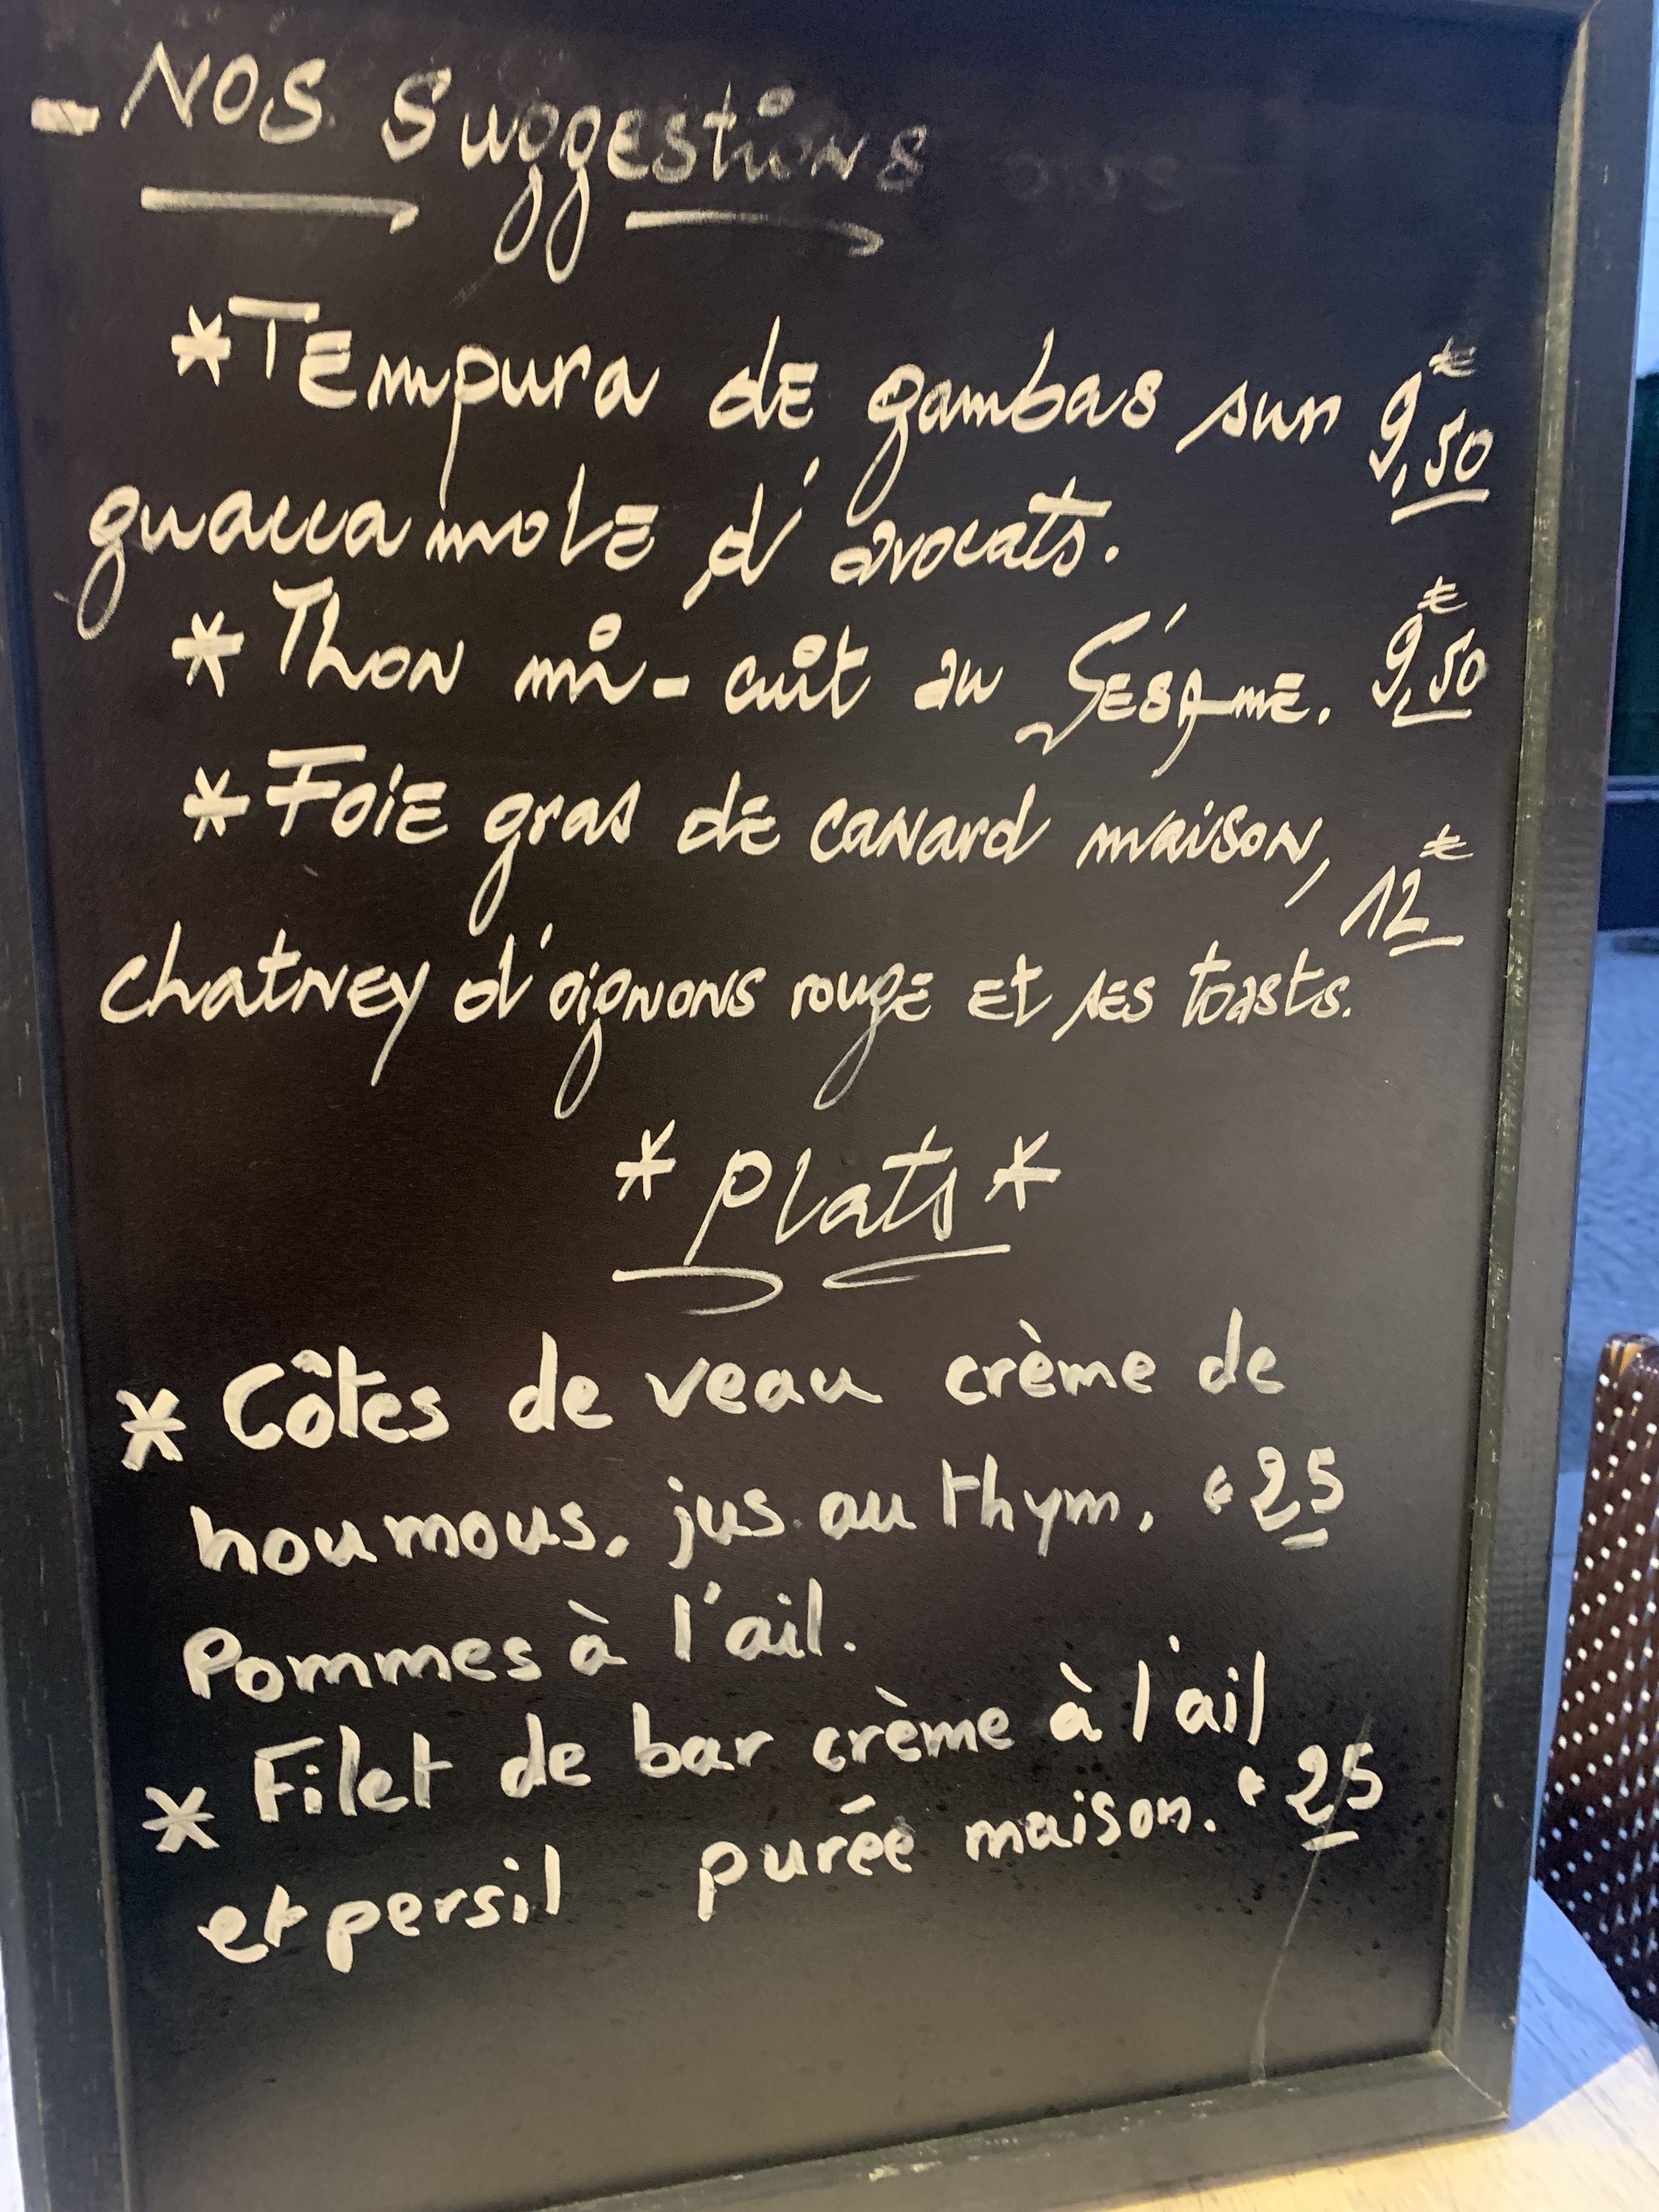 - Nos Suggestions
* Tempura de gambas sur 9,50€
guaccamole d'avocats.
* Thon mi-cuit au Sésame. 9,50€
* Foie gras de canard maison, 12€
chatney d'oignons rouge et ses toasts.
* Plats *
* Côtes de veau crème de
houmous. jus au thym. €25
Pommes à l'ail.
* Filet de bar crème à l'ail
et persil purée maison. €25